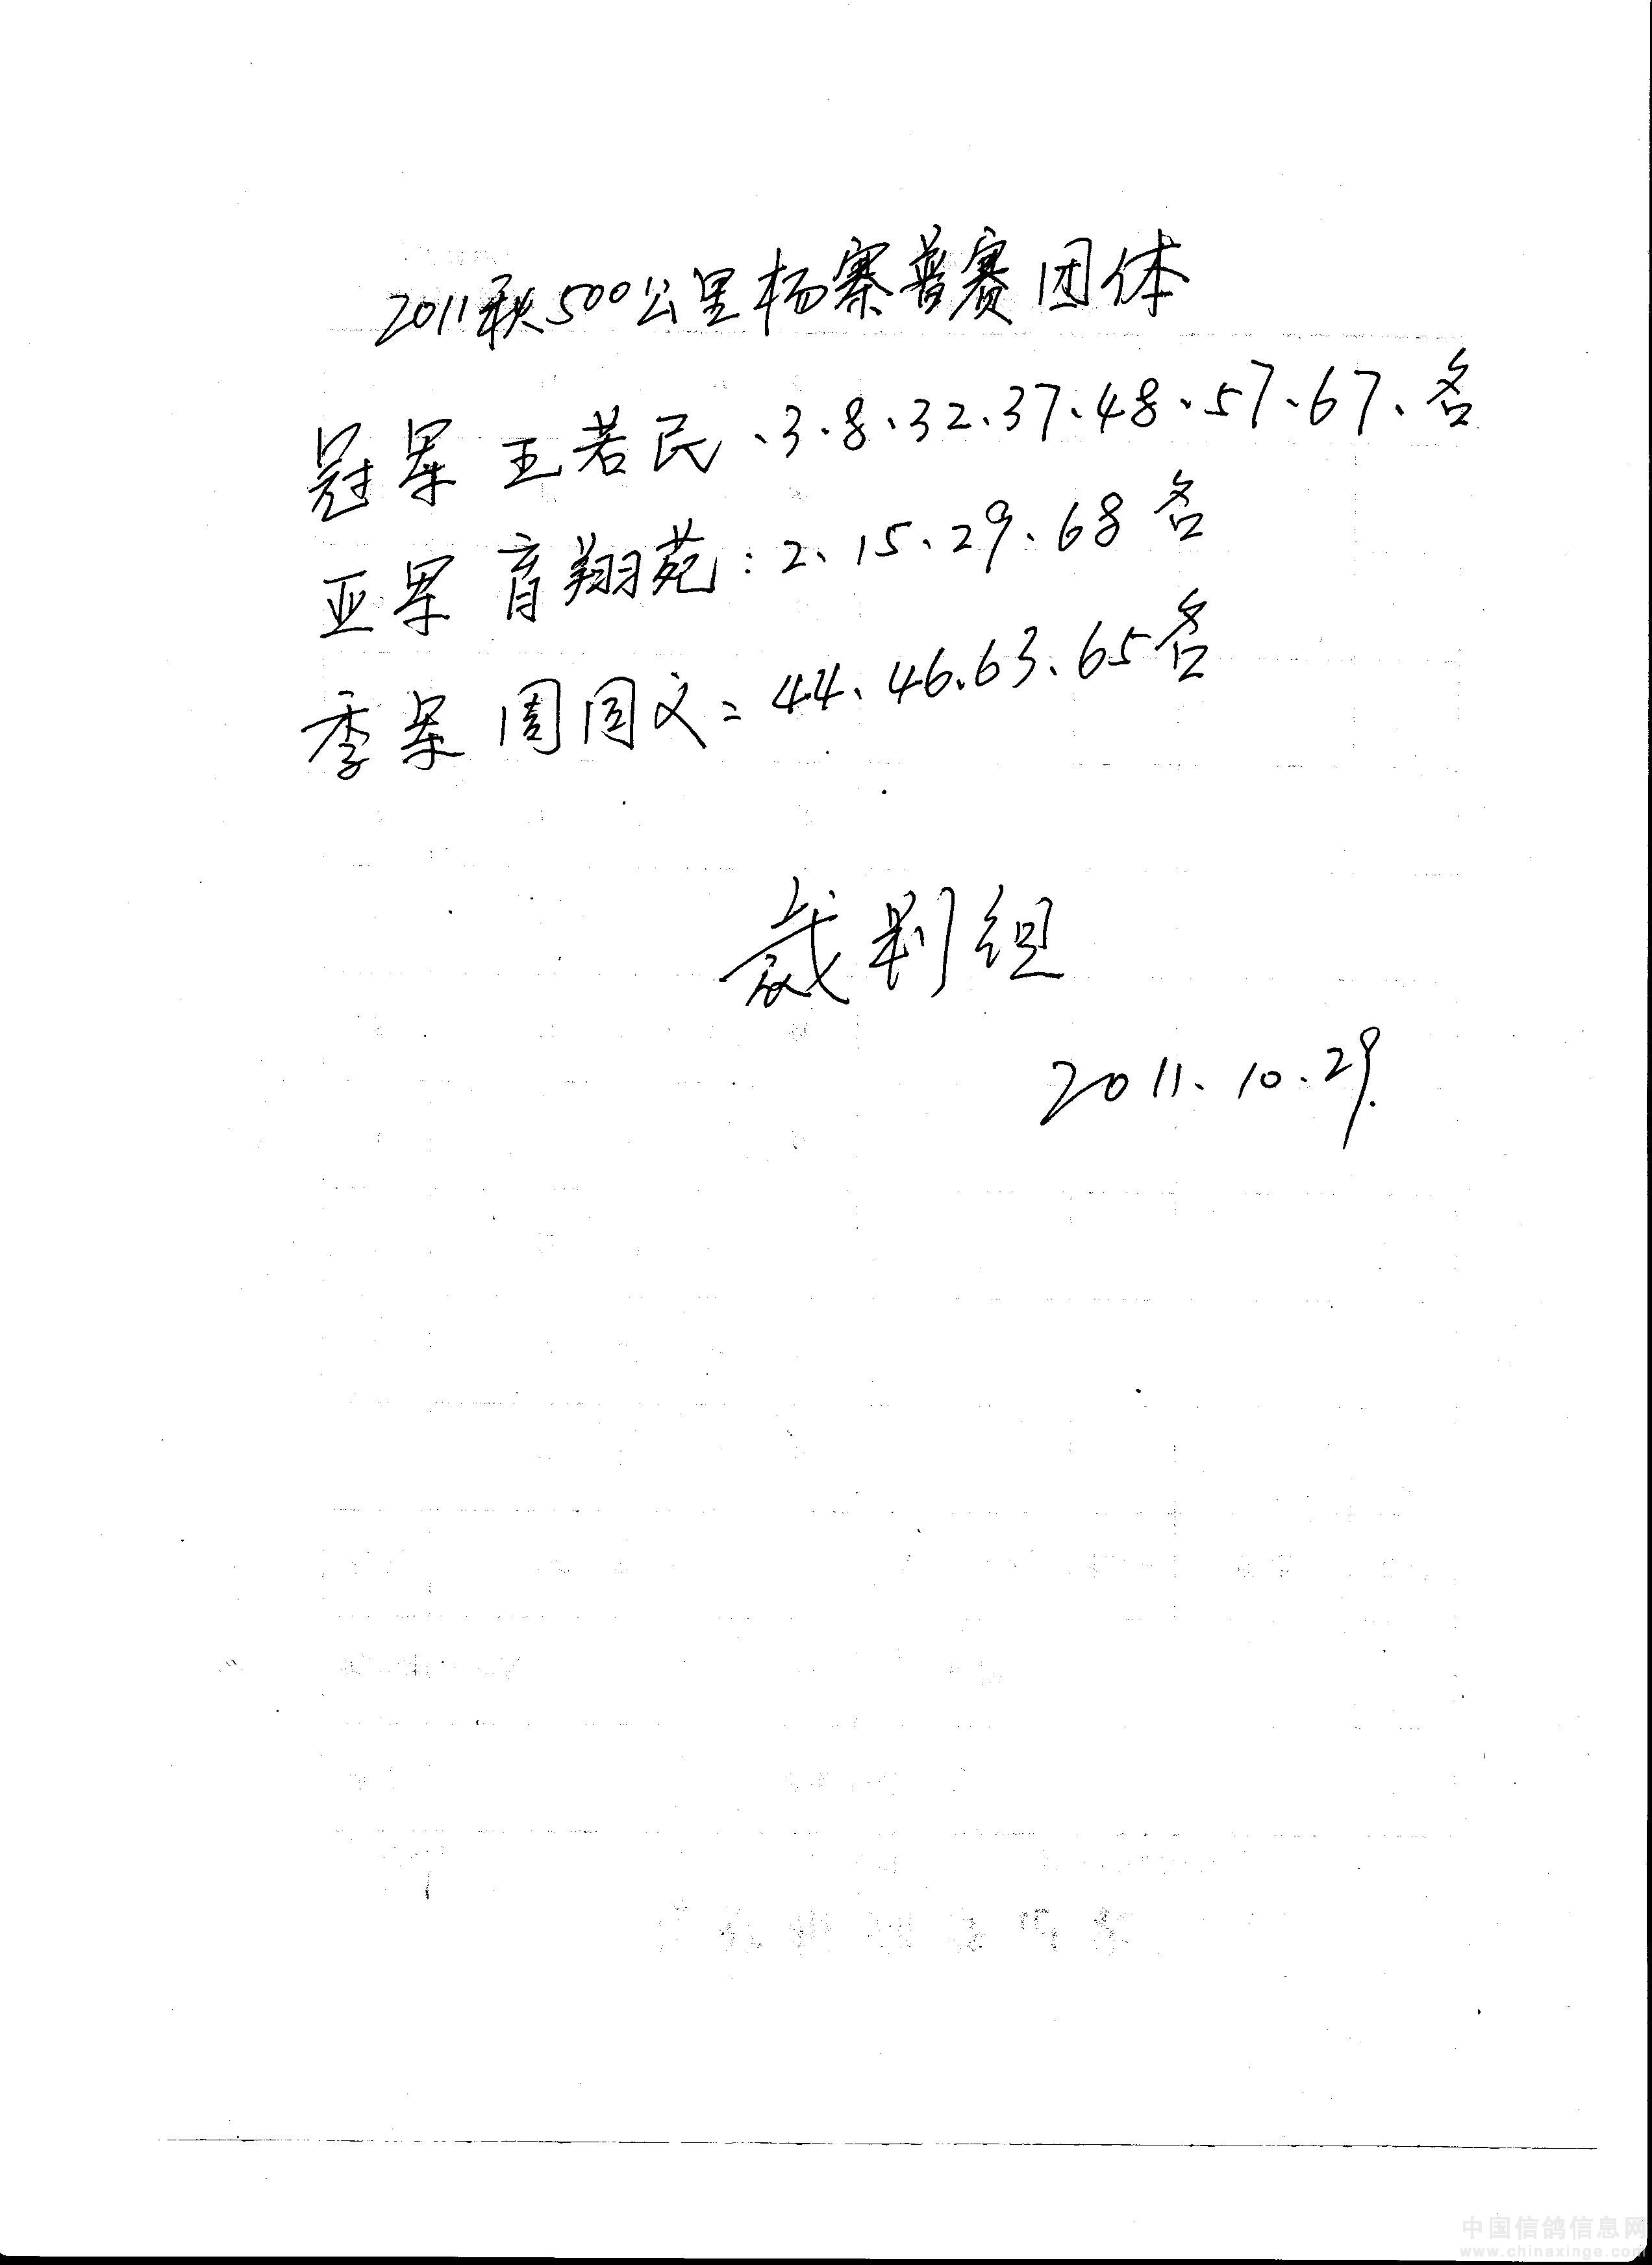 2011秋500公里杨寨普赛团体
冠军 王若民、3、8、32、37、48、57、67、名
亚军 育翔苑:2、15、29、68名
季军 周国文:44、46、63、65名
裁判组
2011、10、29.
中国信鸽信息网
www.chinaxinge.com